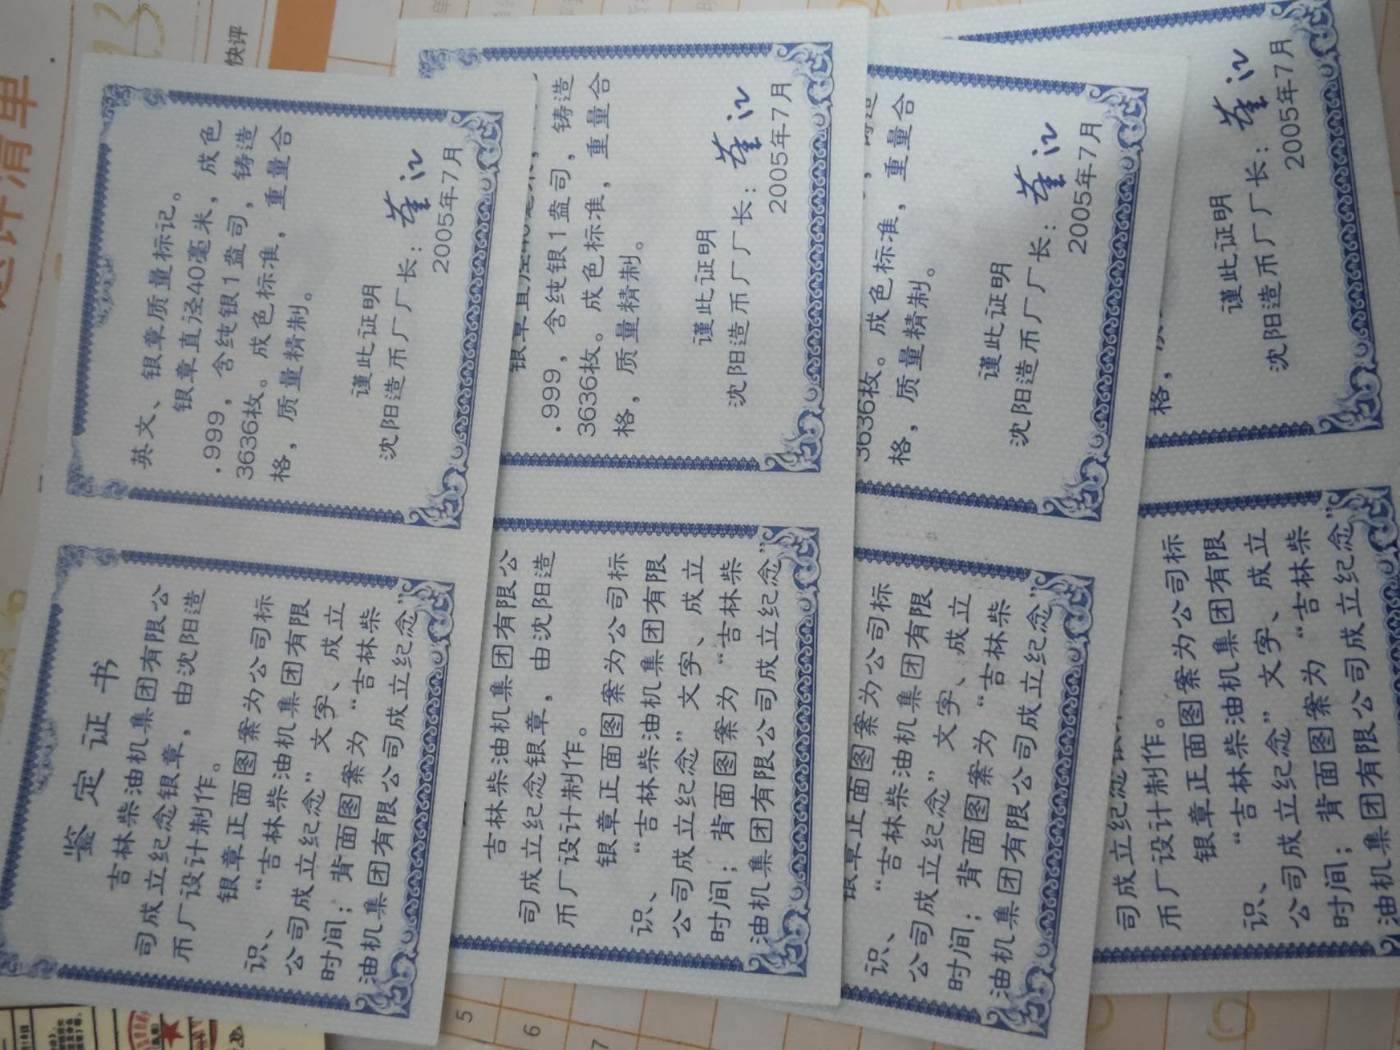 鉴定证书
吉林柴油机集团有限公
司成立纪念银章，由沈阳造
币厂设计制作。
银章正面图案为公司标
识、“吉林柴油机集团有限
公司成立纪念”文字、成立
时间；背面图案为“吉林柴
油机集团有限公司成立纪念”
英文、银章质量标记。
银章直径40毫米，成色
.999，含纯银1盎司，铸造
3636枚。成色标准，重量合
格，质量精制。
谨此证明
沈阳造币厂厂长：
2005年7月
吉林柴油机集团有限公
司成立纪念银章，由沈阳造
币厂设计制作。
银章正面图案为公司标
识、“吉林柴油机集团有限
公司成立纪念”文字、成立
时间；背面图案为“吉林柴
油机集团有限公司成立纪念”
.999，含纯银1盎司，铸造
3636枚。成色标准，重量合
格，质量精制。
谨此证明
沈阳造币厂厂长：
2005年7月
银章正面图案为公司标
识、“吉林柴油机集团有限
公司成立纪念”文字、成立
时间；背面图案为“吉林柴
油机集团有限公司成立纪念”
3636枚。成色标准，重量合
格，质量精制。
谨此证明
沈阳造币厂厂长：
2005年7月
司成立纪念
币厂设计制作。
银章正面图案为公司标
识、“吉林柴油机集团有限
公司成立纪念”文字、成立
时间；背面图案为“吉林柴
油机集团有限公司成立纪念”
格，
谨此证明
沈阳造币厂厂长：
2005年7月
评清单
快评
5
6
7